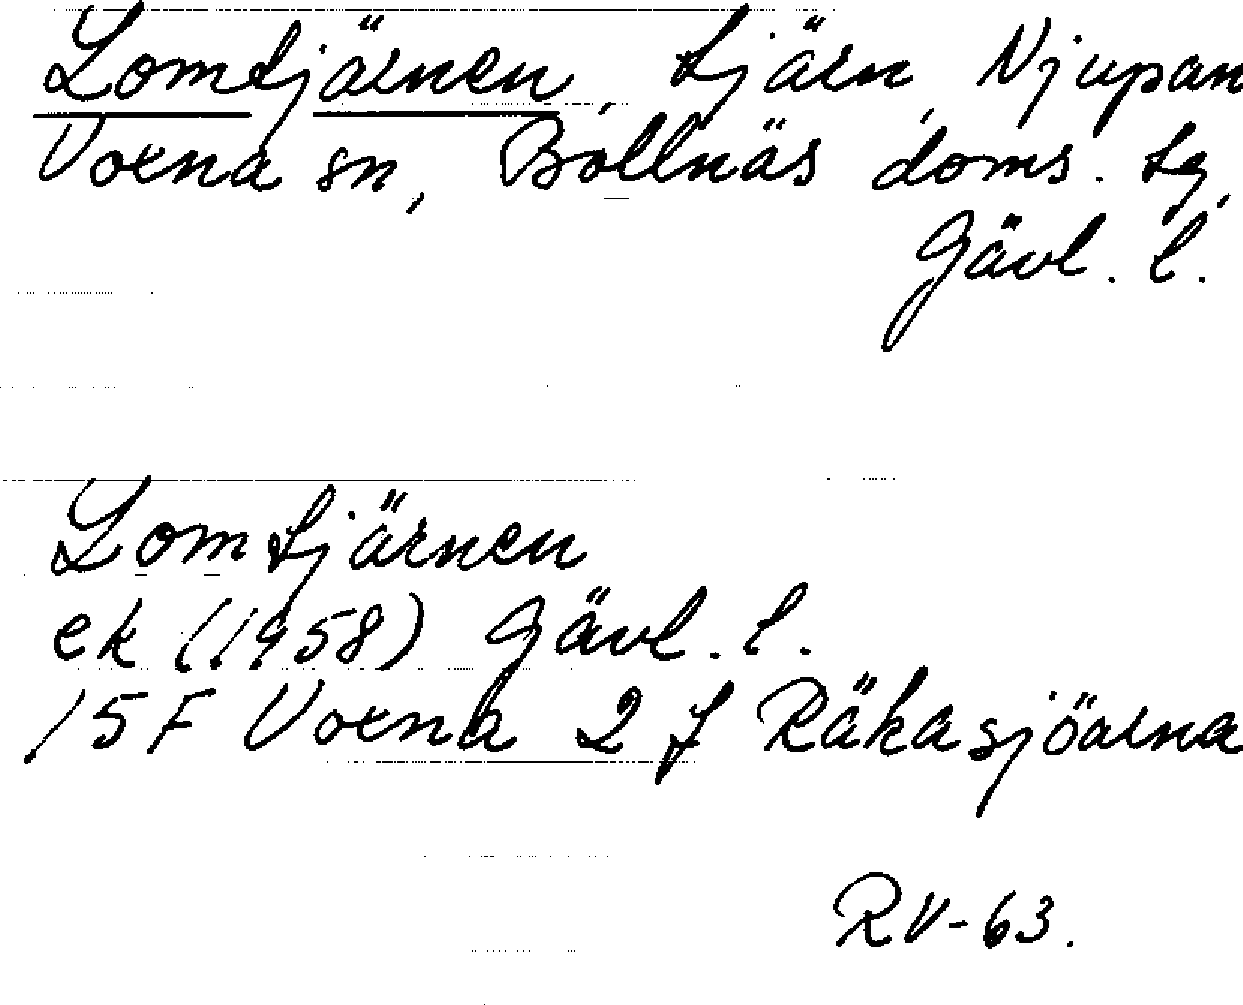 Lomtjärnen, tjärn, Njupan
Voxna sn, Bollnäs doms. tg,
Gävl. l.
Lomtjärnen
ek (1958) Gävl. l.
15F Voxna 2 f Räkasjöarna
RV-63.